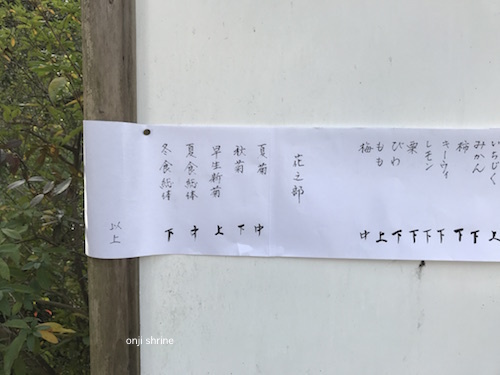 いちじく 上
みかん 下
柿 下
キーウィ 下
レモン 下
栗 下
びわ 下
もも 上
梅 中
花之部
夏菊 中
秋菊 下
早生新菊 上
夏食総体
冬食総体 下
以上
onji shrine